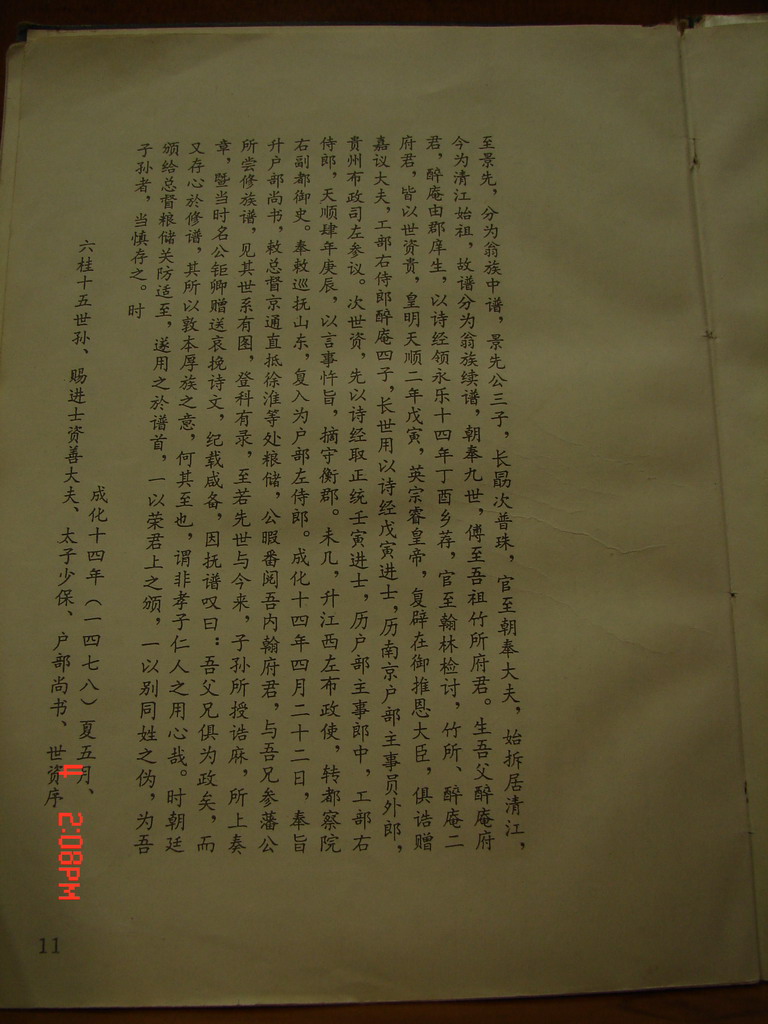 至景先，分为翁族中谱，景先公三子，长勗次普珠，官至朝奉大夫，始拆居清江，
今为清江始祖，故谱分为翁族续谱，朝奉九世，傅至吾祖竹所府君。生吾父醉庵府
君，醉庵由郡庠生，以诗经领永乐十四年丁酉乡荐，官至翰林检讨，竹所、醉庵二
府君，皆以世资贵，皇明天顺二年戊寅，英宗睿皇帝，复辟在御推恩大臣，俱诰赠
嘉议大夫，工部右侍郎醉庵四子，长世用以诗经戊寅进士，历南京户部主事员外郎，
贵州布政司左参议。次世资，先以诗经取正统壬寅进士，历户部主事郎中，工部右
侍郎，天顺肆年庚辰，以言事忤旨，摘守衡郡。未几，升江西左布政使，转都察院
右副都御史。奉敕巡抚山东，复入为户部左侍郎。成化十四年四月二十二日，奉旨
升户部尚书，敕总督京通直抵徐淮等处粮储，公暇番阅吾内翰府君，与吾兄参藩公
所尝修族谱，见其世系有图，登科有录，至若先世与今来，子孙所授诰麻，所上奏
章，暨当时名公钜卿赠送哀挽诗文，纪载咸备，因抚谱叹曰：吾父兄俱为政矣，而
又存心於修谱，其所以敦本厚族之意，何其至也，谓非孝子仁人之用心哉。时朝廷
颁给总督粮储关防适至，遂用之於谱首，一以荣君上之颁，一以别同姓之伪，为吾
子孙者，当慎存之。时
成化十四年（一四七八）夏五月、
六桂十五世孙、赐进士资善大夫、太子少保、户部尚书、世资序
11
2:08PM